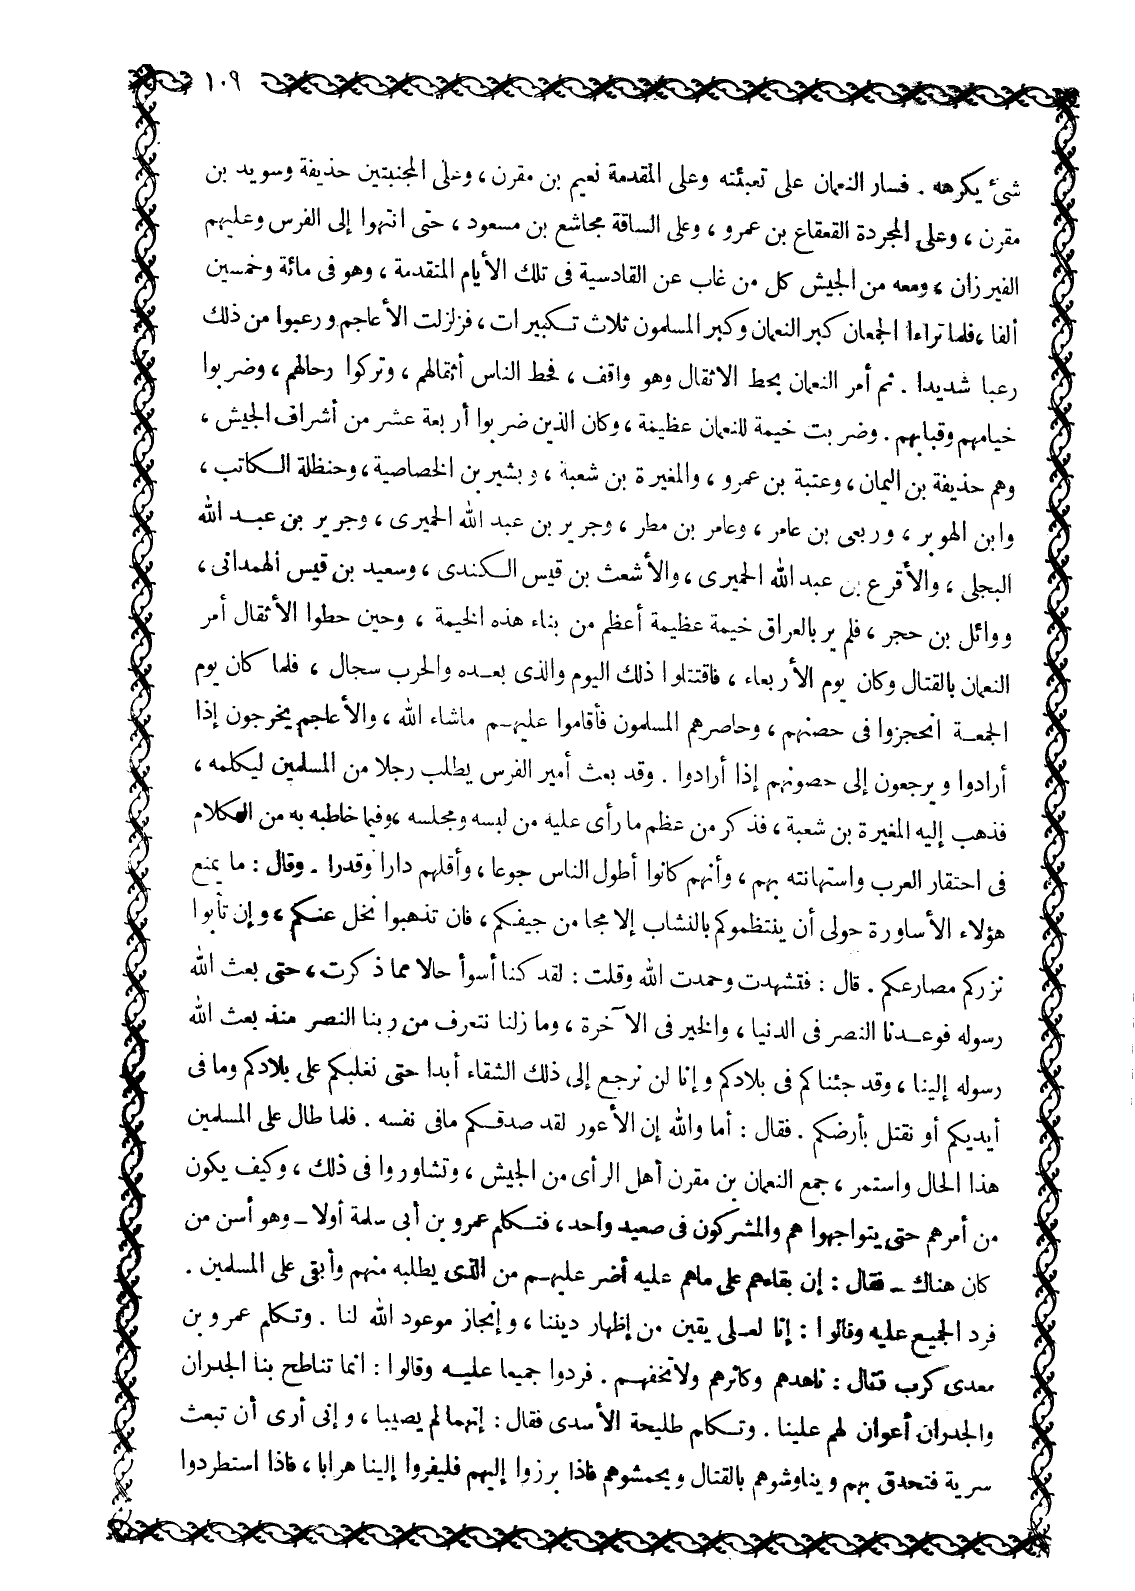 ١٠٩
شئ يكرهه . فسار النعمان على تعبئته وعلى المقدمة نعيم بن مقرن ، وعلى المجنبتين حذيفة وسويد بن
مقرن ، وعلى المجردة القعقاع بن عمرو ، وعلى الساقة مجاشع بن مسعود ، حتى انتهوا إلى الفرس وعليهم
الفيرزان ، ومعه من الجيش كل من غاب عن القادسية فى تلك الأيام المتقدمة ، وهو فى مائة وخمسين
ألفا ، فلما تراءا الجمعان كبر النعمان وكبر المسلمون ثلاث تكبيرات ، فزلزلت الأعاجم ورعبوا من ذلك
رعبا شديدا . ثم أمر النعمان بحط الاثقال وهو واقف ، فحط الناس أثقالهم ، وتركوا رحالهم ، وضربوا
خيامهم وقبابهم . وضربت خيمة للنعمان عظيمة ، وكان الذين ضربوا أربعة عشر من أشراف الجيش ،
وهم حذيفة بن اليمان ، وعتبة بن عمرو ، والمغيرة بن شعبة ، وبشير بن الخصاصية ، وحنظلة الكاتب ،
وابن الهوبر ، وربعى بن عامر ، وعامر بن مطر ، وجرير بن عبد الله الحميرى ، وجرير بن عبد الله
البجلى ، والأقرع بن عبد الله الحميرى ، والأشعث بن قيس الكندى ، وسعيد بن قيس الهمدانى ،
ووائل بن حجر ، فلم ير بالعراق خيمة عظيمة أعظم من بناء هذه الخيمة ، وحين حطوا الأثقال أمر
النعمان بالقتال وكان يوم الأربعاء ، فاقتتلوا ذلك اليوم والذى بعده والحرب سجال ، فلما كان يوم
الجمعة انحجزوا فى حصنهم ، وحاصرهم المسلمون فأقاموا عليهم ماشاء الله ، والأعاجم يخرجون إذا
أرادوا ويرجعون إلى حصونهم إذا أرادوا . وقد بعث أمير الفرس يطلب رجلا من المسلمين ليكلمه ،
فذهب إليه المغيرة بن شعبة ، فذكر من عظم ما رأى عليه من لبسه ومجلسه ، وفيما خاطبه به من الكلام
فى احتقار العرب واستهانته بهم ، وأنهم كانوا أطول الناس جوعا ، وأقلهم دارا وقدرا . وقال : ما يمنع
هؤلاء الأساورة حولى أن ينتظموكم بالنشاب إلا مجا من جيفكم ، فان تذهبوا نخل عنكم ، وإن تأبوا
نزركم مصارعكم . قال : فتشهدت وحمدت الله وقلت : لقد كنا أسوأ حالا مما ذكرت ، حتى بعث الله
رسوله فوعدنا النصر فى الدنيا ، والخير فى الآخرة ، وما زلنا نتعرف من ربنا النصر منذ بعث الله
رسوله إلينا ، وقد جئناكم فى بلادكم وإنا لن نرجع إلى ذلك الشقاء أبدا حتى نغلبكم على بلادكم وما فى
أيديكم أو نقتل بأرضكم . فقال : أما والله إن الأعور لقد صدقكم مافى نفسه . فلما طال على المسلمين
هذا الحال واستمر ، جمع النعمان بن مقرن أهل الرأى من الجيش ، وتشاوروا فى ذلك ، وكيف يكون
من أمرهم حتى يتواجهوا هم والمشركون فى صعيد واحد ، فتكلم عمرو بن أبى سلمة أولا ــ وهو أسن من
كان هناك ــ فقال : إن بقاءهم على ماهم عليه أضر عليهم من الذى يطلبه منهم وأبقى على المسلمين .
فرد الجميع عليه وقالوا : إنا لعلى يقين من إظهار ديننا ، وإنجاز موعود الله لنا . وتكلم عمرو بن
معدى كرب فقال : ناهدهم وكاثرهم ولاتخفهم . فردوا جميعا عليه وقالوا : انما تناطح بنا الجدران
والجدران أعوان لهم علينا . وتكلم طليحة الأسدى فقال : إنهما لم يصيبا ، وإنى أرى أن تبعث
سرية فتحدق بهم ويناوشوهم بالقتال ويحمشوهم فاذا برزوا إليهم فليفروا إلينا هرابا ، فاذا استطردوا